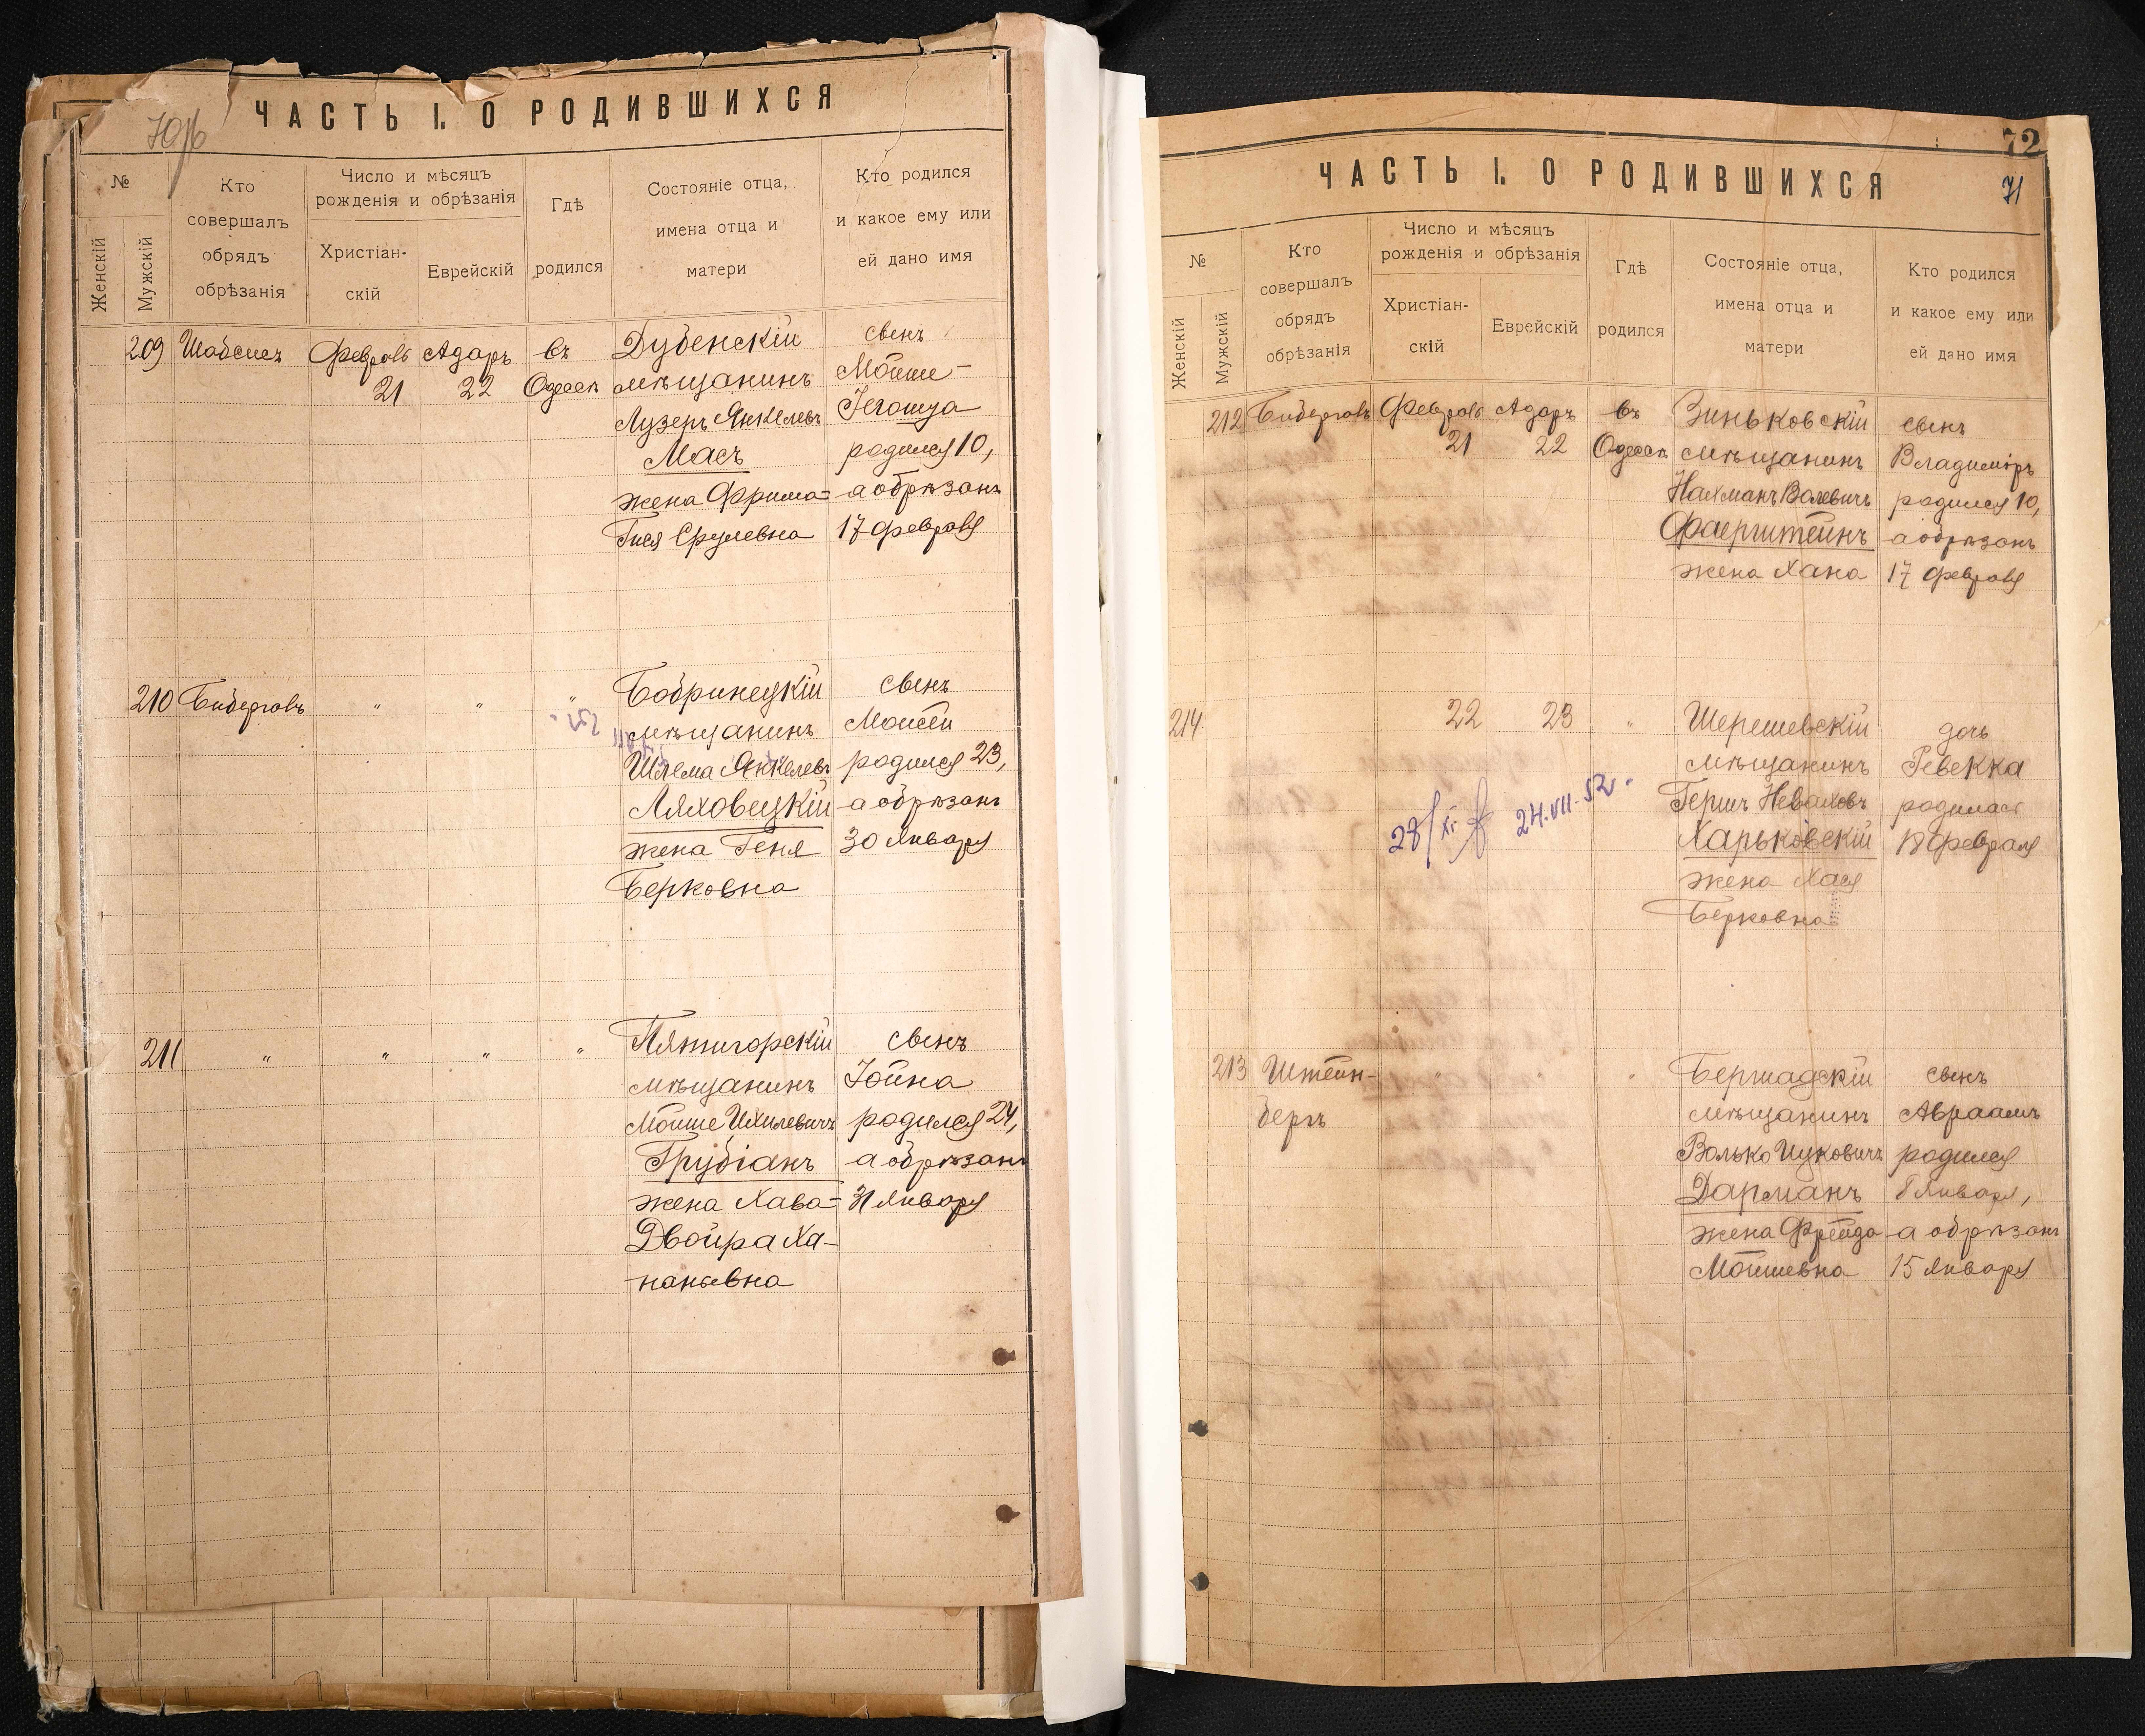 ЧАСТЬ I. О РОДИВШИХСЯ
№
Женскій
Мужскій
Кто
совершалъ
обрядъ
обрѣзанія
Число и мѣсяцъ
рожденія и обрѣзанія
Христіан-
скій
Еврейскій
Гдѣ
родился
Состояніе отца,
имена отца и
матери
Кто родился
и какое ему или
ей дано имя
209
Шабсисъ
Февраль
21
Адаръ
22
въ
Одессѣ
Дубенскій
мѣщанинъ
Лузеръ Янкелевъ
Масъ
жена Фрима-
Гися Срулевна
сынъ
Мойше-
Іегошуа
родился 10,
а обрѣзанъ
17 февраля
210
"
"
"
Бобринецкій
мѣщанинъ
Шлема Янкелевъ
Ляховецкій
жена Геня
Берковна
сынъ
Моисей
родился 23,
а обрѣзанъ
30 Января
211
"
"
"
"
Пятигорскій
мѣщанинъ
Мойше Ихилевичъ
Грубіанъ
жена Хава-
Двойра Ха-
наньевна
сынъ
Іойна
родился 24,
а обрѣзанъ
31 Января
72
71
ЧАСТЬ I. О РОДИВШИХСЯ
№
Женскій
Мужскій
Кто
совершалъ
обрядъ
обрѣзанія
Число и мѣсяцъ
рожденія и обрѣзанія
Христіан-
скій
Еврейскій
Гдѣ
родился
Состояніе отца,
имена отца и
матери
Кто родился
и какое ему или
ей дано имя
212
Февраль
21
Адаръ
22
въ
Одессѣ
Зиньковскій
мѣщанинъ
Нахманъ Волевичъ
Фаерштейнъ
жена Хана
сынъ
Владиміръ
родился 10,
а обрѣзанъ
17 февраля
214
22
23
"
Шерешевскій
мѣщанинъ
Гершъ Неваховъ
Харьковскій
жена Хася
Берковна
дочь
Ревекка
родилась
18 февраля
24.VII.52.
213
Штейн-
бергъ
"
"
"
Бершадскій
мѣщанинъ
Волько Ицковичъ
Дарманъ
жена Фрейда
Мойшевна
сынъ
Авраамъ
родился
8 Января,
а обрѣзанъ
15 Января